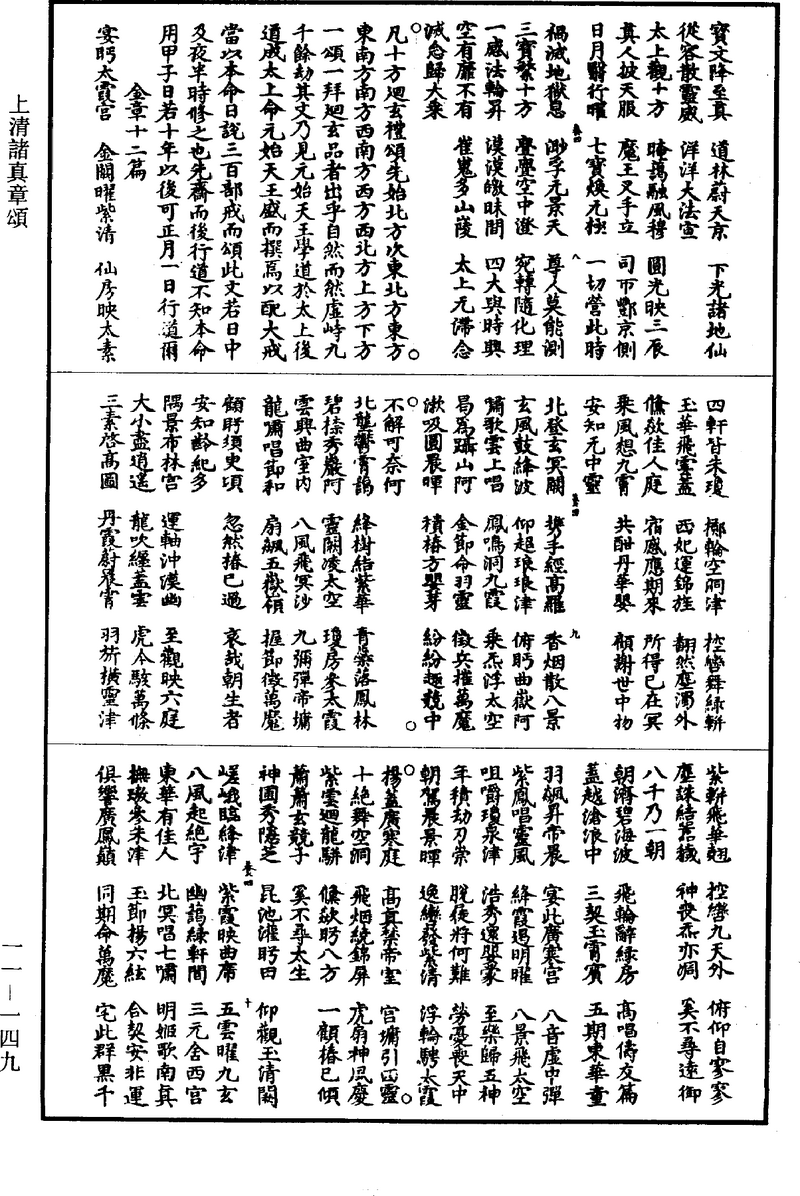 上清諸真章頌
寶文降至真　道林蔚天京　下光諸地仙
從容散靈威　洋洋大法宣
太上觀十方　晻藹融風穆　圓光映三辰
真人披天服　魔王叉手立　司帀酆京側
日月翳行曜　七寶煥元極　一切營此時
禍滅地獄息　渺乎元景天　尊人莫能測
三寶縈十方　疊疊空中澄　宛轉隨化理
一感法輪昇　漠漠皦昧間　四大與時興
空有靡不有　崔嵬多山陵　太上元滯念
滅念歸大乘
凡十方迴玄禮頌先始北方次東北方東方
東南方南方西南方西方西北方上方下方
一頌一拜迴玄品者出乎自然而然虛峙九
千餘劫其文乃見元始天王學道於太上後
道成太上命元始天王盛而撰焉以配大戒
當以本命日說三百部戒而頌此文若日中
及夜半時修之也先齋而後行道不知本命
用甲子日若十年以後可正月一日行道爾
金章十二篇
宴眄太霞宮　金闕曜紫清　仙房映太素
四軒皆朱瓊　擲輪空洞津　控轡舞綠軿
玉華飛雲蓋　西妃運錦旌　翻然塵濁外
儵欻佳人庭　宿感應期來　所得已在冥
乘風想九霄　共酣丹華嬰　顧謝世中物
安知元中靈
北登玄冥闕　攜手經高羅　香烟散八景
玄風鼓絳波　仰超琅琅津　俯眄曲嶽阿
嘯歌雲上唱　鳳鳴洞九霞　乘炁浮太空
曷為躡山阿　金節命羽靈　徵兵摧萬魔
漱吸圓晨暉　積椿方嬰芽　紛紛趣競中
不解可奈何
北壟鬱霄鵠　絳樹結紫華　青嶽落鳳林
碧榛秀巖阿　靈闕凌太空　瓊房參太霞
雲興曲室內　八風飛冥沙　九彌彈帝墉
龍嘯唱節和　扇飆五嶽嶺　握節徵萬魔
顧眄須臾頃　忽然椿已過　哀哉朝生者
安知齡紀多
隅景布林宮　運軸沖漠幽　至觀映六庭
大小盡逍遙　龍吹纏蓋雲　虎伞駭萬條
三素啓高圖　丹霞蔚晨霄　羽旂橫靈津
紫軿飛華翹　控轡九天外　俯仰自寥寥
塵誅結舊穢　神喪炁亦凋　奚不尋遠御
八千乃一朝
朝濟碧海波　飛輪辭綠房　高唱儔友篇
蓋越滄浪中　三契玉霄賓　五期東華童
羽飆昇帝晨　宴此廣寒宮　八音虛中彈
紫鳳唱靈風　絳霞遏明曜　八景飛太空
咀嚼瓊泉津　浩秀還嬰蒙　至樂歸五神
年積劫刃崇　脫促將何難　勞憂喪天中
朝駕晨景暉　逸轡發紫清　浮輪騁太霞
揚蓋廣寒庭　高真縈帝室　宮墉引四靈
十絕舞空洞　飛烟繞錦屏　虎扇神風慶
紫雲迴龍騈　儵欻眄八方　一顧椿已傾
蕭蕭玄競子　奚不尋太生
神圃秀隱芝　昆池灌眄田　仰觀玉清闕
嵯峨臨絳津　紫霞映曲席　五雲曜九玄
八風起絕宇　幽藹綠軒間　三元舍西宮
東華有佳人　北冥唱七嘯　明姬歌南真
撫璈寒朱津　玉節揚六絃　合契安非運
俱響廣鳳巔　同期命萬魔　宅此群黑千
一一—一四九